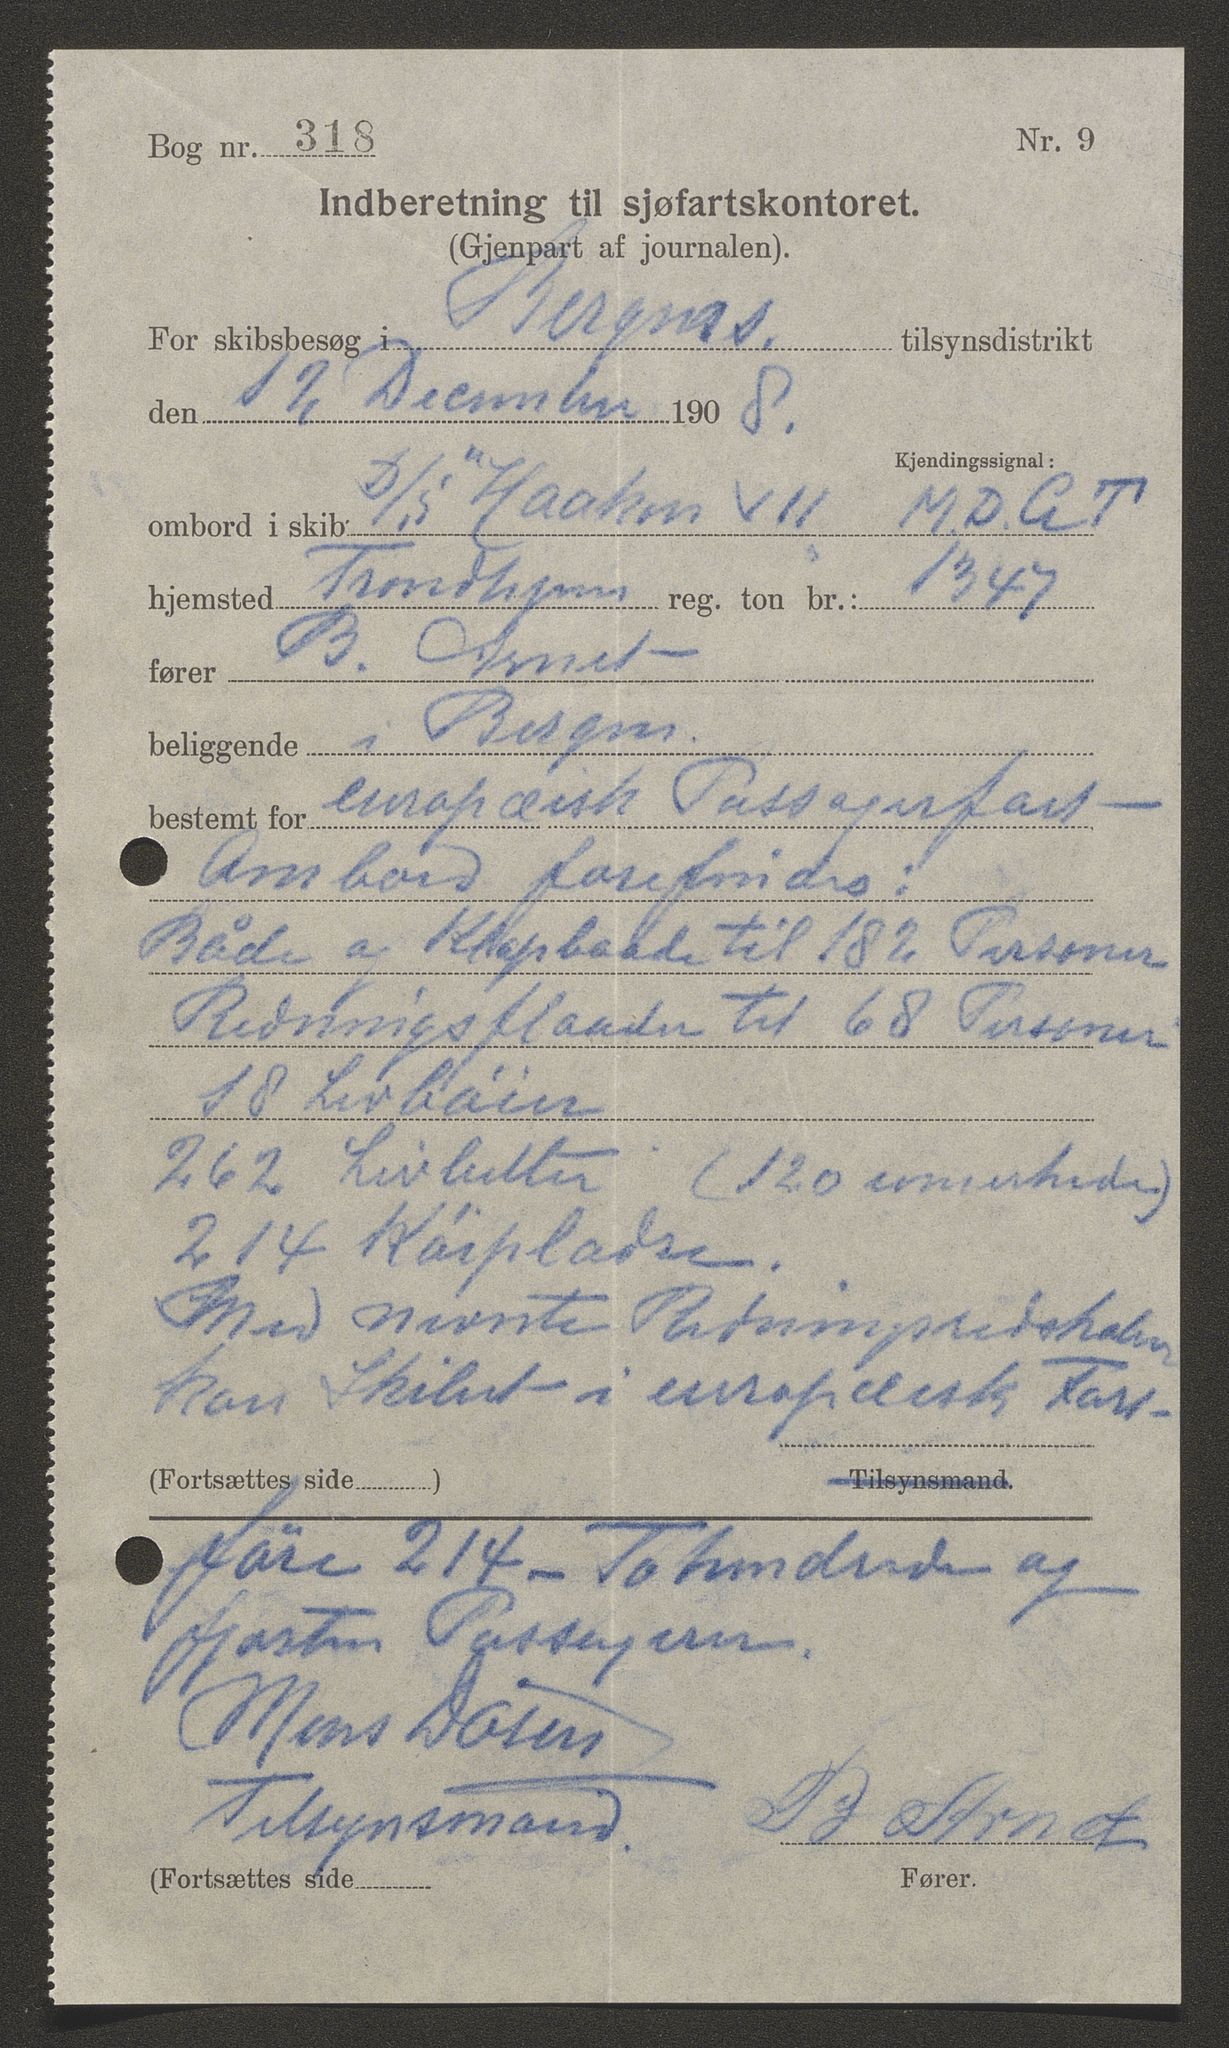 Bog nr. 318 Nr. 9
Indberetning til sjøfartskontoret.
(Gjenpart af journalen).
For skibsbesøg i Bergens. tilsynsdistrikt
den 12 December 1908.
Kjendingssignal:
ombord i skib D/S "Haakon VII M.D.G.T
hjemsted Trondhjem reg. ton br.: 1347
fører B. Arnet
beliggende i Bergen.
bestemt for europæisk Passagerfart
Ombord forefindes:
Både og Klapbaade til 182 Personer
Redningsflaader til 68 Personer
18 Livböier
262 Livbelter (120 umerkede)
214 Köipladse.
Med nevnte Redningsredskaber
kan Skibet i europæisk Fart
(Fortsættes side ) Tilsynsmand.
före 214 - Tohundrede og
fjorten Passagerer.
Mons Dösen
Tilsynsmand. B Arnet
(Fortsættes side Fører.